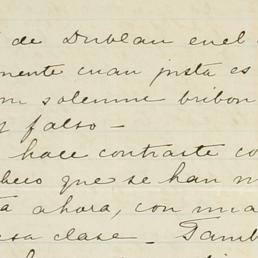 de Dublan en el
mente cuan justa es
solemne bribon
y falso —
hace contraste co
checo que se han m
a ahora, con mi a
esa clase — Tamb